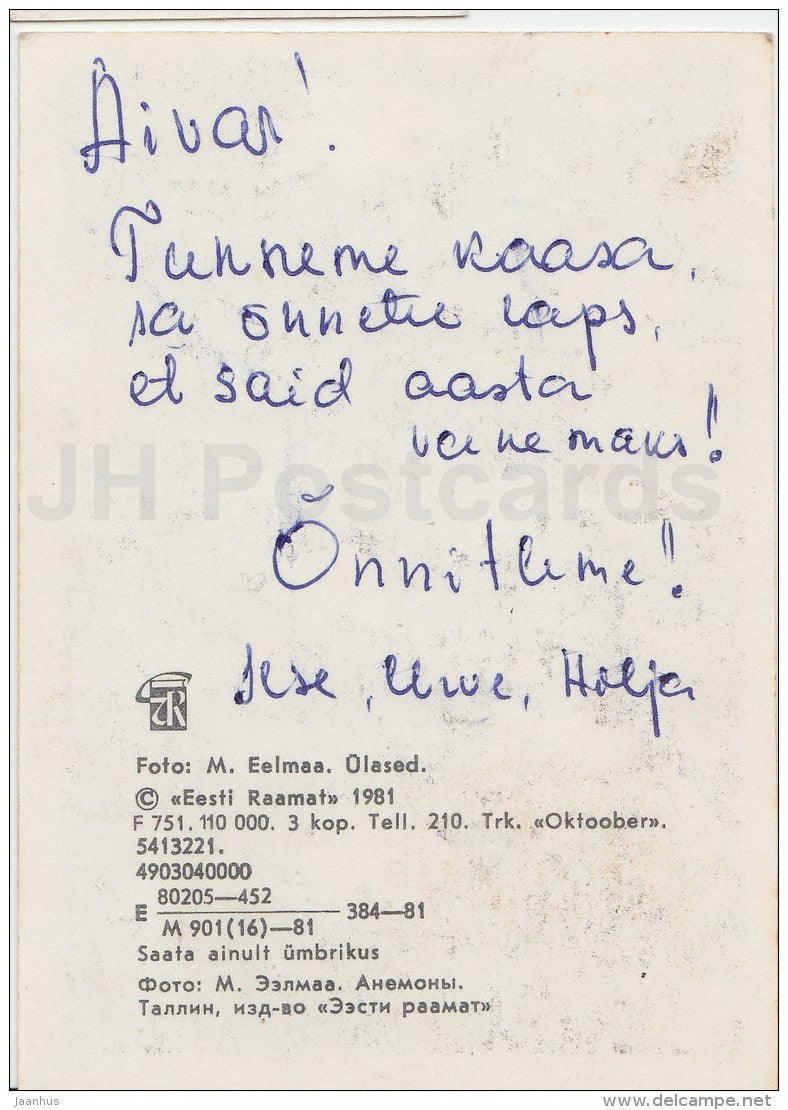 Aivar!
Tunneme kaasa,
sa õnnetu laps,
et said aasta
vanemaks!
JH Postcards
Õnnitleme!
Ilse, Uve, Hilja
Foto: M. Eelmaa. Ülased.
© «Eesti Raamat» 1981
F 751. 110 000. 3 kop. Tell. 210. Trk. «Oktoober».
5413221.
4903040000
E 80205—452
M 901(16)—81 384—81
Saata ainult ümbrikus
Фото: М. Ээлмаа. Анемоны.
Таллин, изд-во «Ээсти раамат»
jaanhus
www.delcampe.net